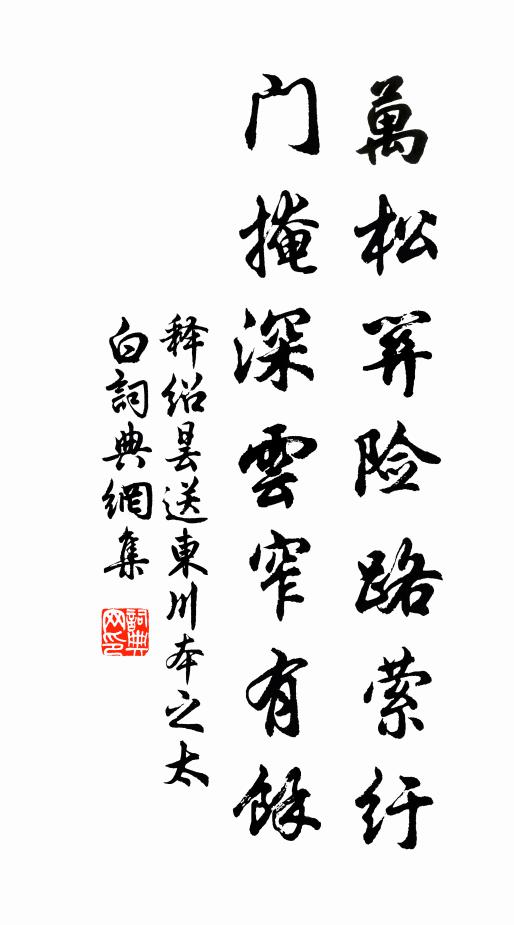 萬松关险路萦纡
门掩深雲窄有餘
释绍昙送東川本之太
白詞典網集
詞典网印